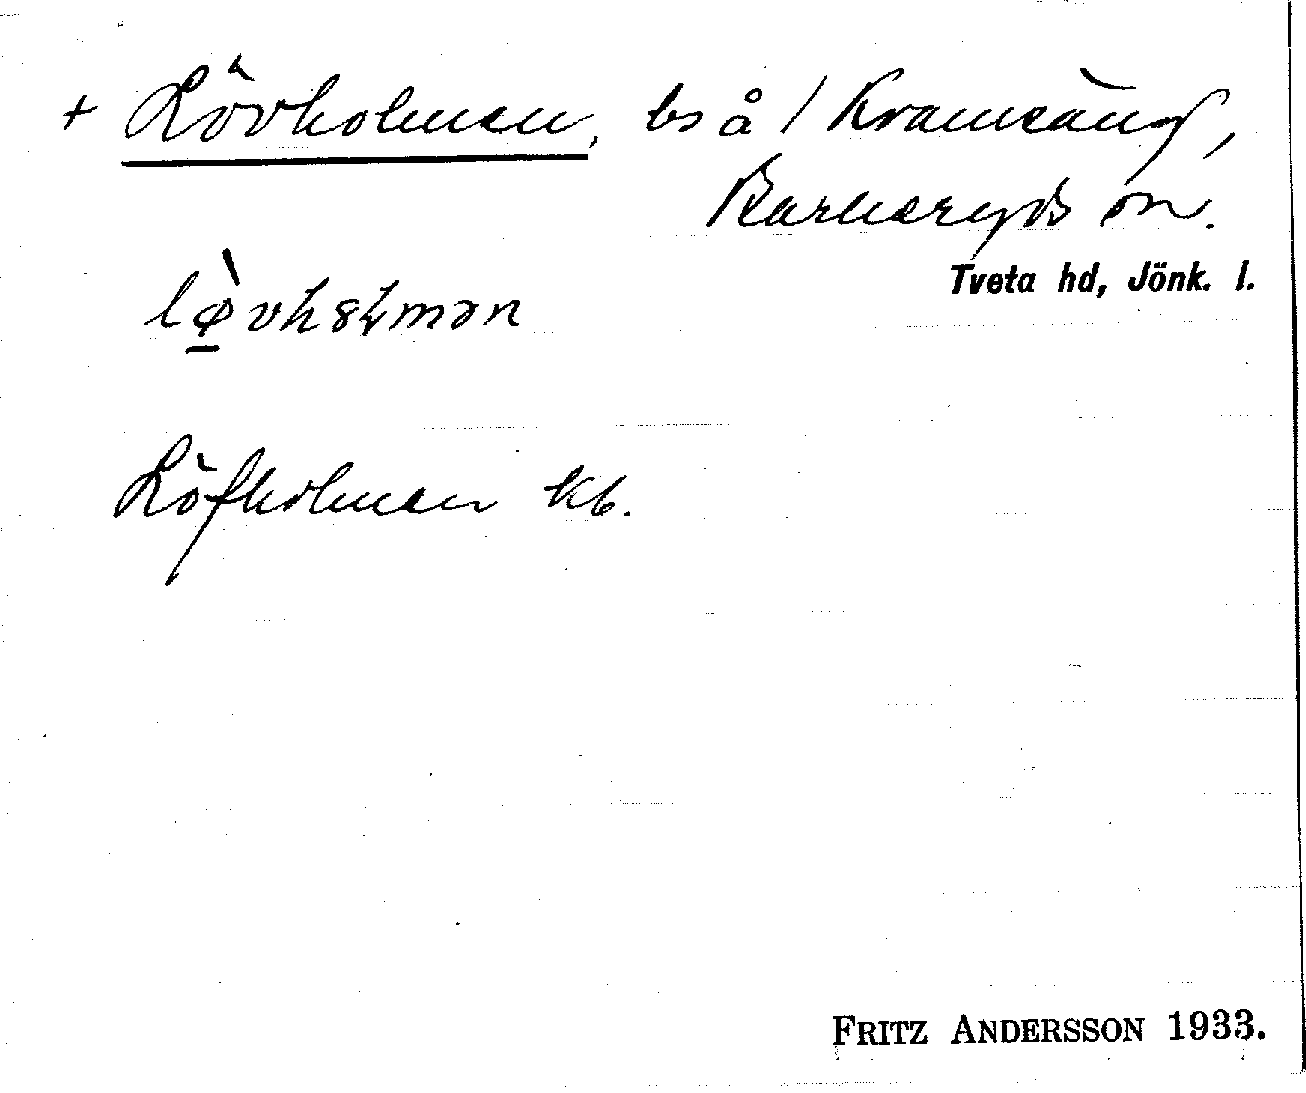 + Lövholmen, bs å / Kramsäng,
Barkeryds sn.
Tveta hd, Jönk. l.
lø̱̀vhalmən
Löfholmen kb.
FRITZ ANDERSSON 1933.